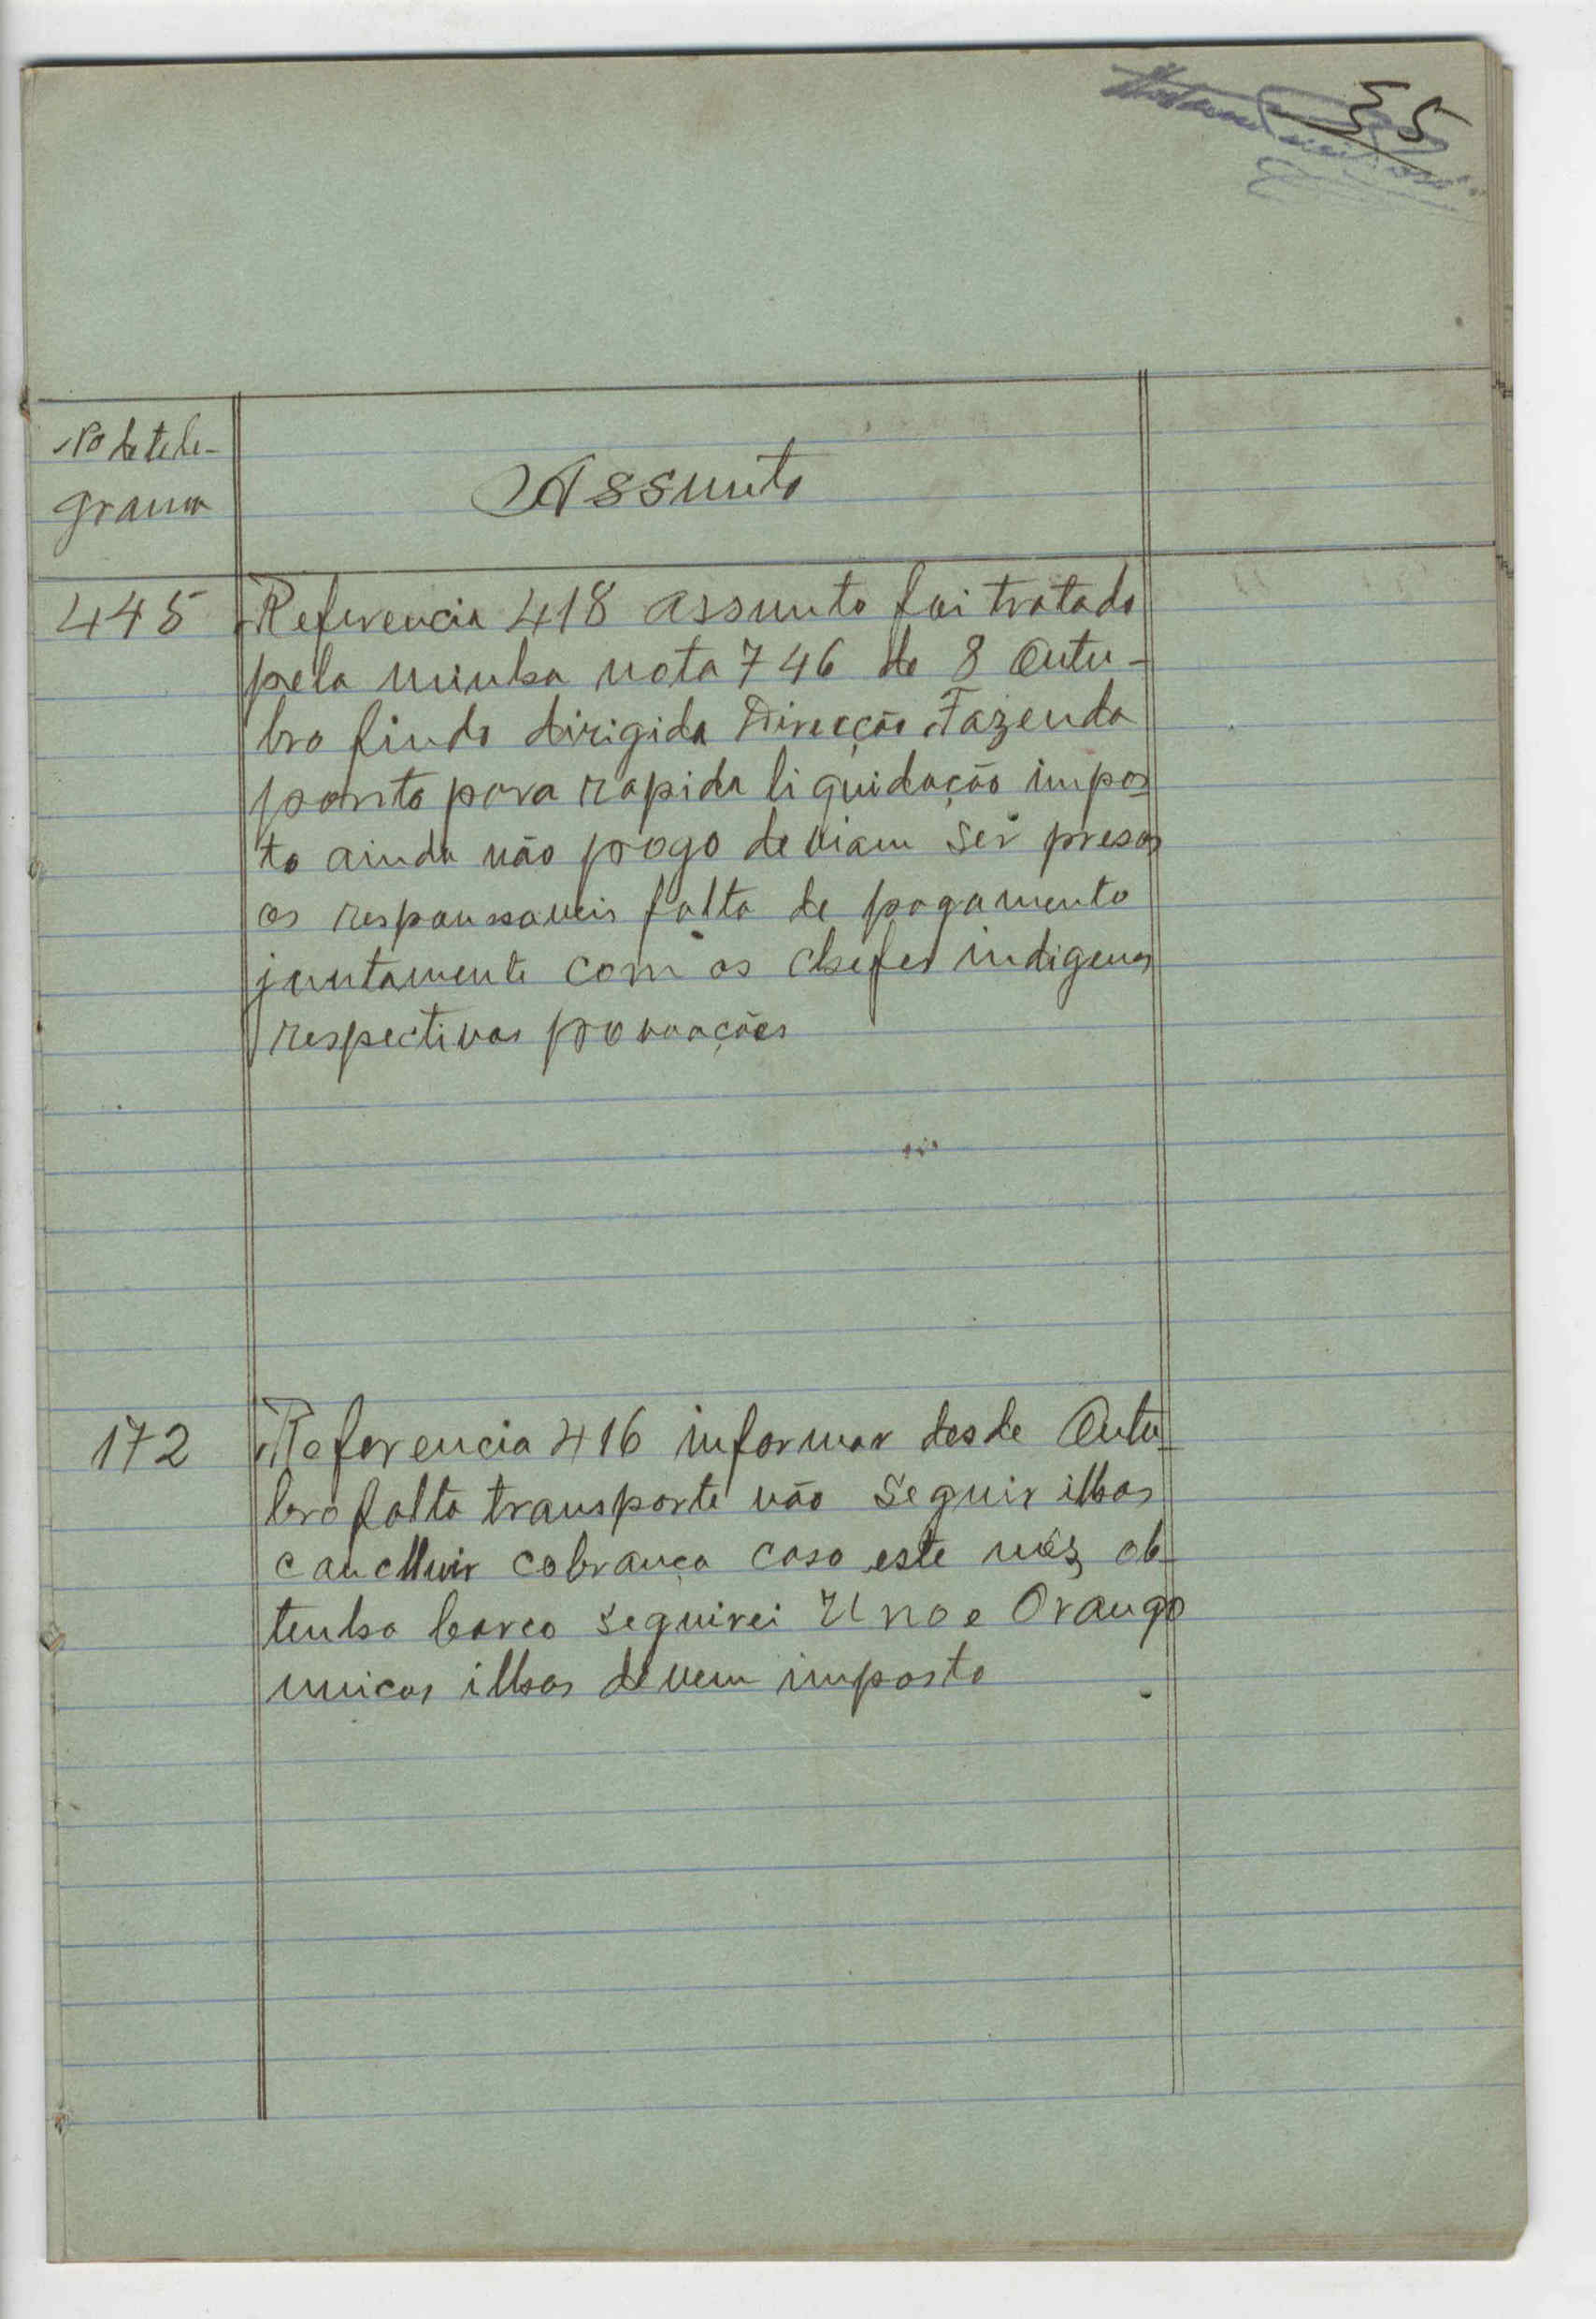 35
Nº de tele-
grama
Assunto
445 Referencia 418 assunto foi tratado
pela minha nota 746 de 8 Outu-
bro findo dirigida Direcção Fazenda
ponto para rapida liquidação impos-
to ainda não pago deviam ser presos
os responssaveis falta de pagamento
juntamente com os chefes indigenas
respectivas povoações
172 Referencia 416 informar desde Outu-
bro falta transporte não seguir ilhas
concluir cobrança caso este mêz ob-
tenha barco seguirei Uno e Orango
unicas ilhas devem imposto